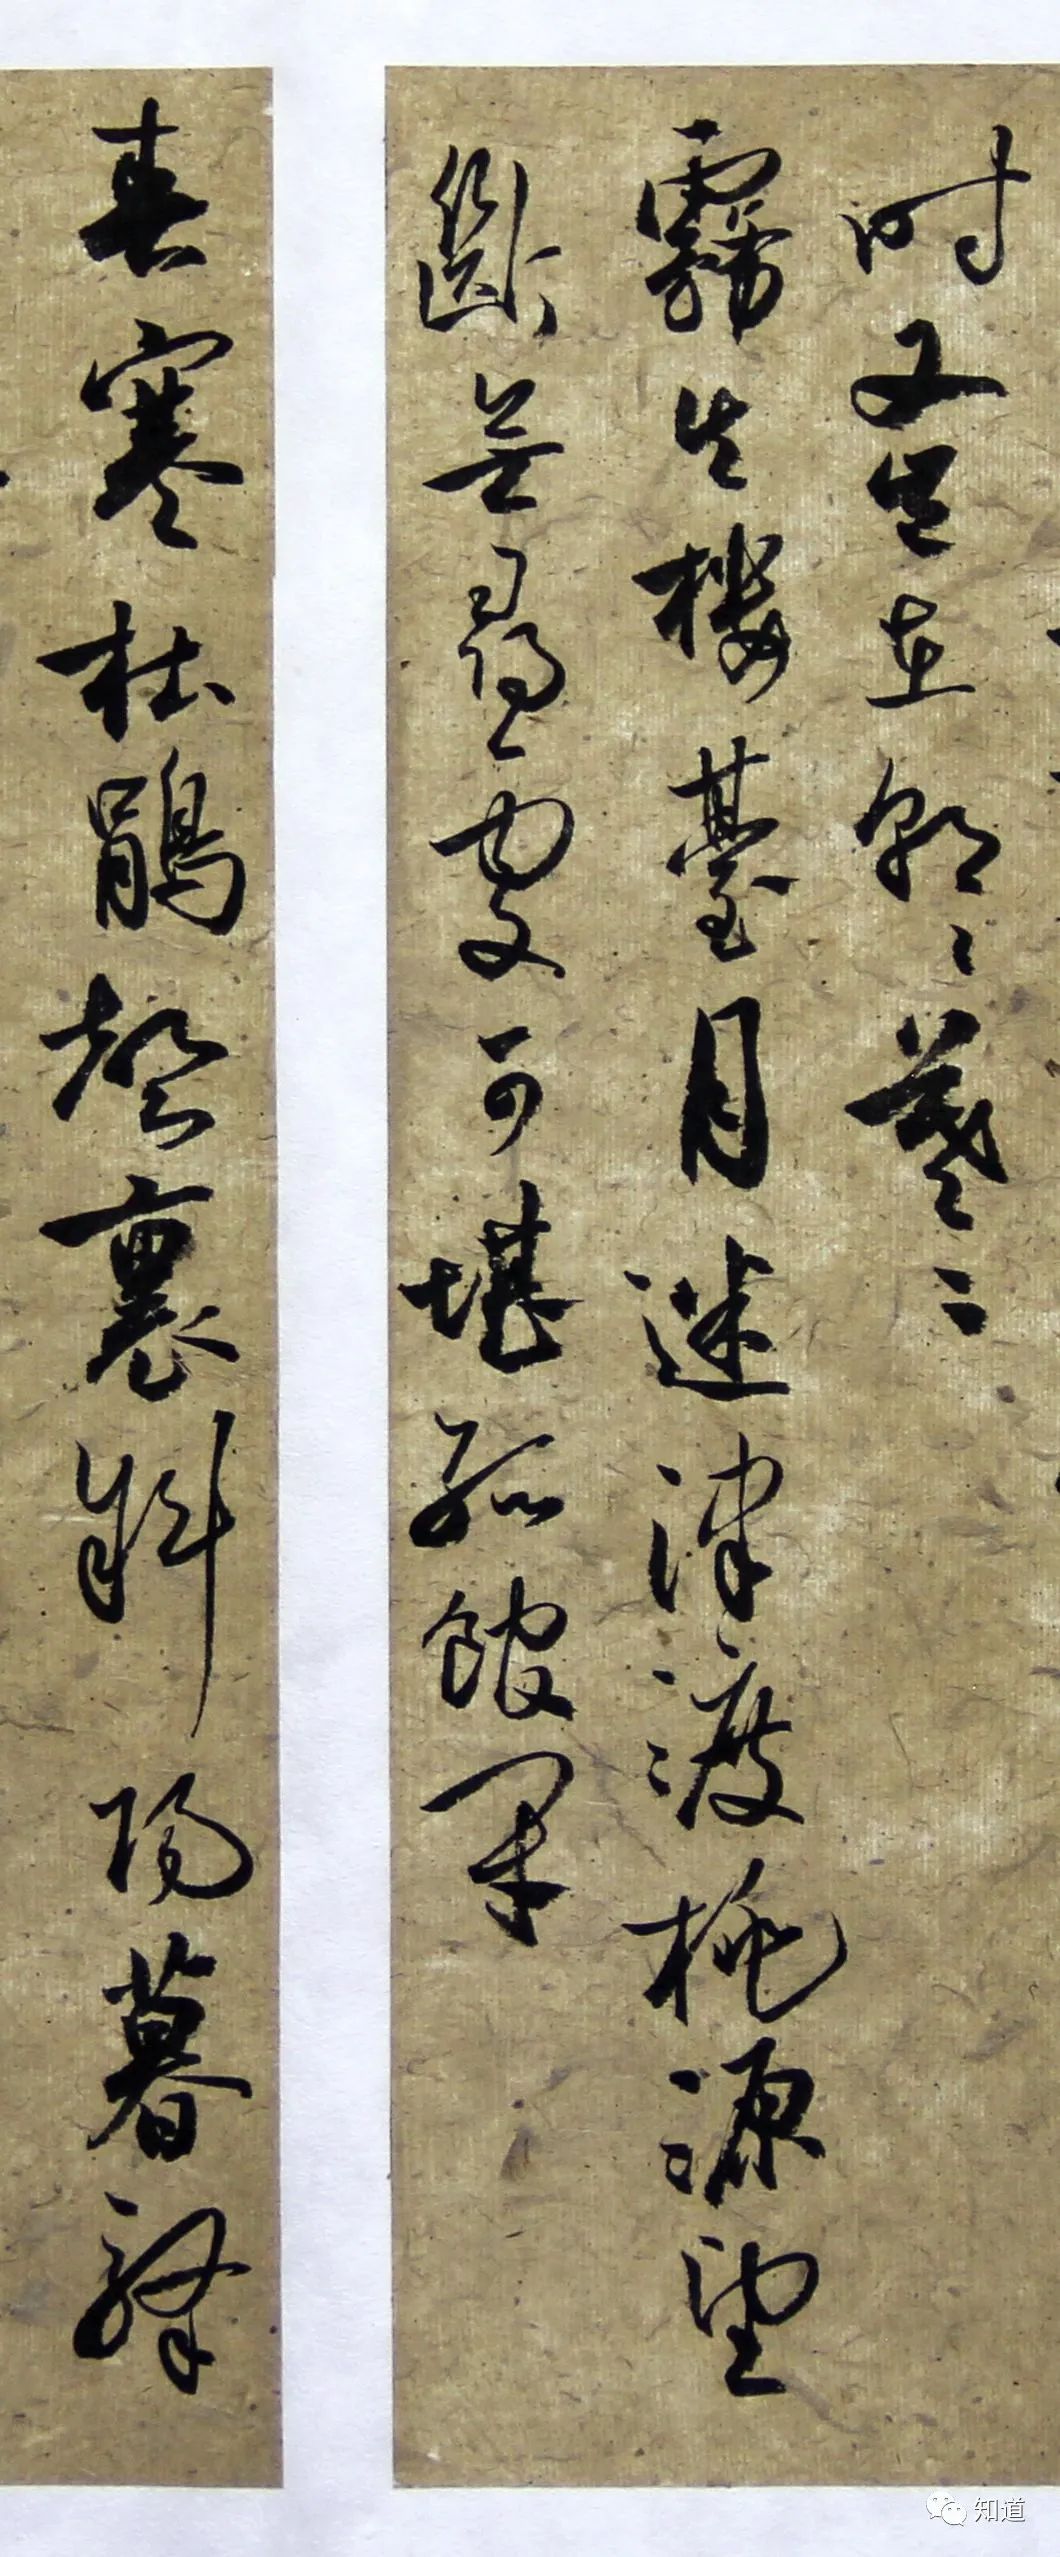 时又岂在朝〻暮〻
霧失樓臺月迷津渡桃源望
斷無尋處可堪孤館閉
春寒杜鵑聲裏斜陽暮驛
知道